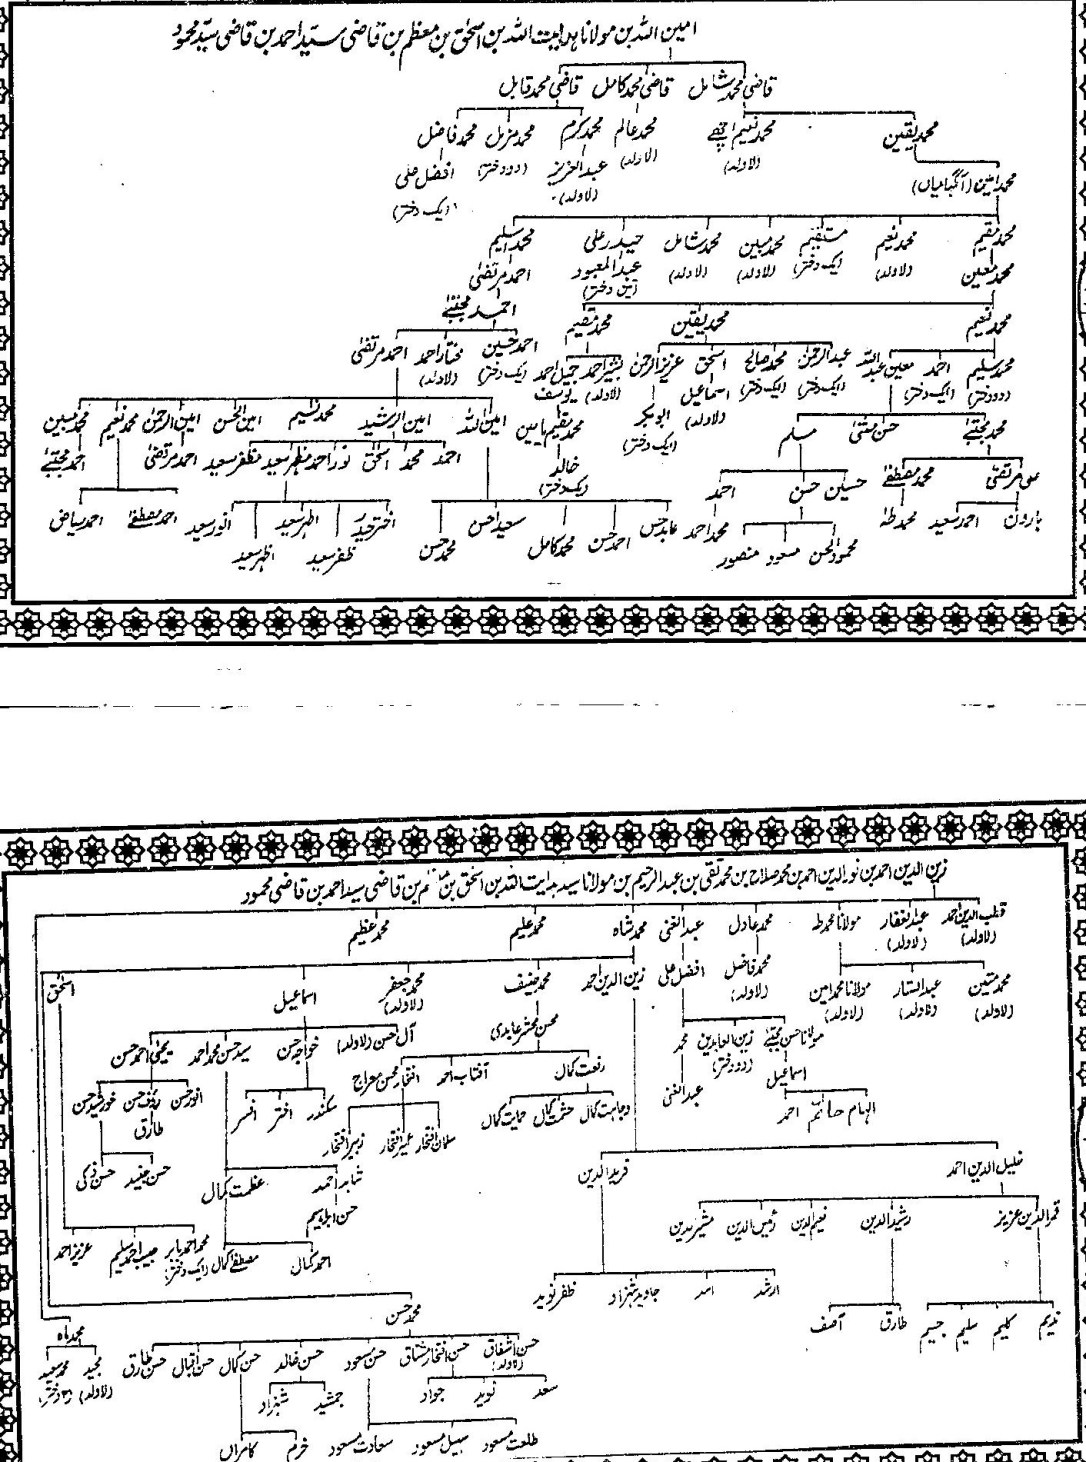 امین اللہ بن مولانا ہدایت اللہ بن اسحٰق بن معظم بن قاضی سید احمد بن قاضی سید محمود
قاضی محمد شامل قاضی محمد کامل قاضی محمد قابل
محمد یقین محمد نعیم اچھے محمد عالم محمد مکرم محمد مزمل محمد فاضل
(لاولد) (لاولد) عبدالعزیز (دو دختر) افضل علی
(لاولد) (ایک دختر)
محمد مقیم محمد نعیم مستقیم محمد مبین محمد شامل حیدر علی محمد سلیم
محمد معین (لاولد) (ایک دختر) (لاولد) (لاولد) عبدالمعبود احمد مرتضیٰ
(تین دختر) احمد مجتبیٰ
محمد نعیم محمد یقین محمد مقیم احمد حسین مختار احمد احمد مرتضیٰ
(ایک دختر) (لاولد)
محمد سلیم احمد معین عبداللہ عبدالرحمٰن محمد صالح اسحٰق عزیز الرحمٰن بشیر احمد جمیل احمد
(دو دختر) (ایک دختر) (ایک دختر) (ایک دختر) اسماعیل ابوبکر (لاولد) یوسف
(لاولد) (ایک دختر) محمد مقیم یامین
خالد
(یک دختر)
امین اللہ امین الرشید محمد نسیم امین الحسن امین الرحمٰن محمد نعیم محمد مبین
محمد مجتبیٰ حسن مثنیٰ مسلم
احمد محمد اسحٰق نور احمد مظہر سعید مظفر سعید احمد مرتضیٰ احمد مجتبیٰ
علی مرتضیٰ محمد مصطفےٰ حسین حسن احمد
ہارون احمد سعید محمد طہٰ محمود الحسن مسعود منصور محمد احمد
عابد حسن احمد حسن محمد کامل سعید احسن محمد حسن
اختر حیدر ظفر سعید اطہر سعید اظہر سعید انور سعید احمد مصطفےٰ احمد ریاض
زین الدین احمد بن نور الدین احمد بن محمد صلاح بن محمد تقی بن عبدالرحیم بن مولانا سید ہدایت اللہ بن اسحٰق بن معظم بن قاضی سید احمد بن قاضی محمود
قطب الدین احمد عبدالغفار مولانا محمد طہٰ محمد عادل عبدالغنی محمد شاہ محمد علیم محمد عظیم
(لاولد) (لاولد)
محمد متین عبدالستار مولانا محمد امین محمد فاضل افضل علی زین الدین احمد محمد حنیف محمد جعفر اسماعیل اسحٰق
(لاولد) (لاولد) (لاولد) (لاولد) (لاولد)
مولانا حسن مجتبیٰ زین العابدین محمد محسن محشر عابدی آل حسن (لاولد) خواجہ حسن سید حسن محمد احمد یحییٰ احمد حسن
اسماعیل (دو دختر) عبدالغنی رفعت کمال آفتاب احمد افتخار محسن معراج
الہام حاتم احمد وجاہت کمال حشمت کمال حمایت کمال
سکندر اختر افسر انور حسن رؤف حسن خورشید حسن
طارق
سلمان افتخار عمیر افتخار زبیر افتخار
حسن جنید حسن ذکی
خلیل الدین احمد فرید الدین شاہد احمد عظمت کمال
حسن ابراہیم
قمر الدین عزیز رشید الدین نعیم الدین رئیس الدین مشیر الدین
احمد کمال مصطفےٰ کمال محمد احمد بابر حبیب احمد سلیم عزیز احمد
(ایک دختر)
ارشد اسد جاوید شہزاد ظفر نوید
ندیم کلیم سلیم جسیم طارق آصف
محمد حسن محمد ماہ
مجید محمد سعید
(لاولد) (۳ دختر)
حسن اشفاق حسن افتخار مشتاق حسن مسعود حسن خالد حسن کمال حسن اقبال حسن طارق
(لاولد)
سعد نوید جواد جمشید شہزاد
طلعت مسعود سہیل مسعود سعادت مسعود خرم کامران